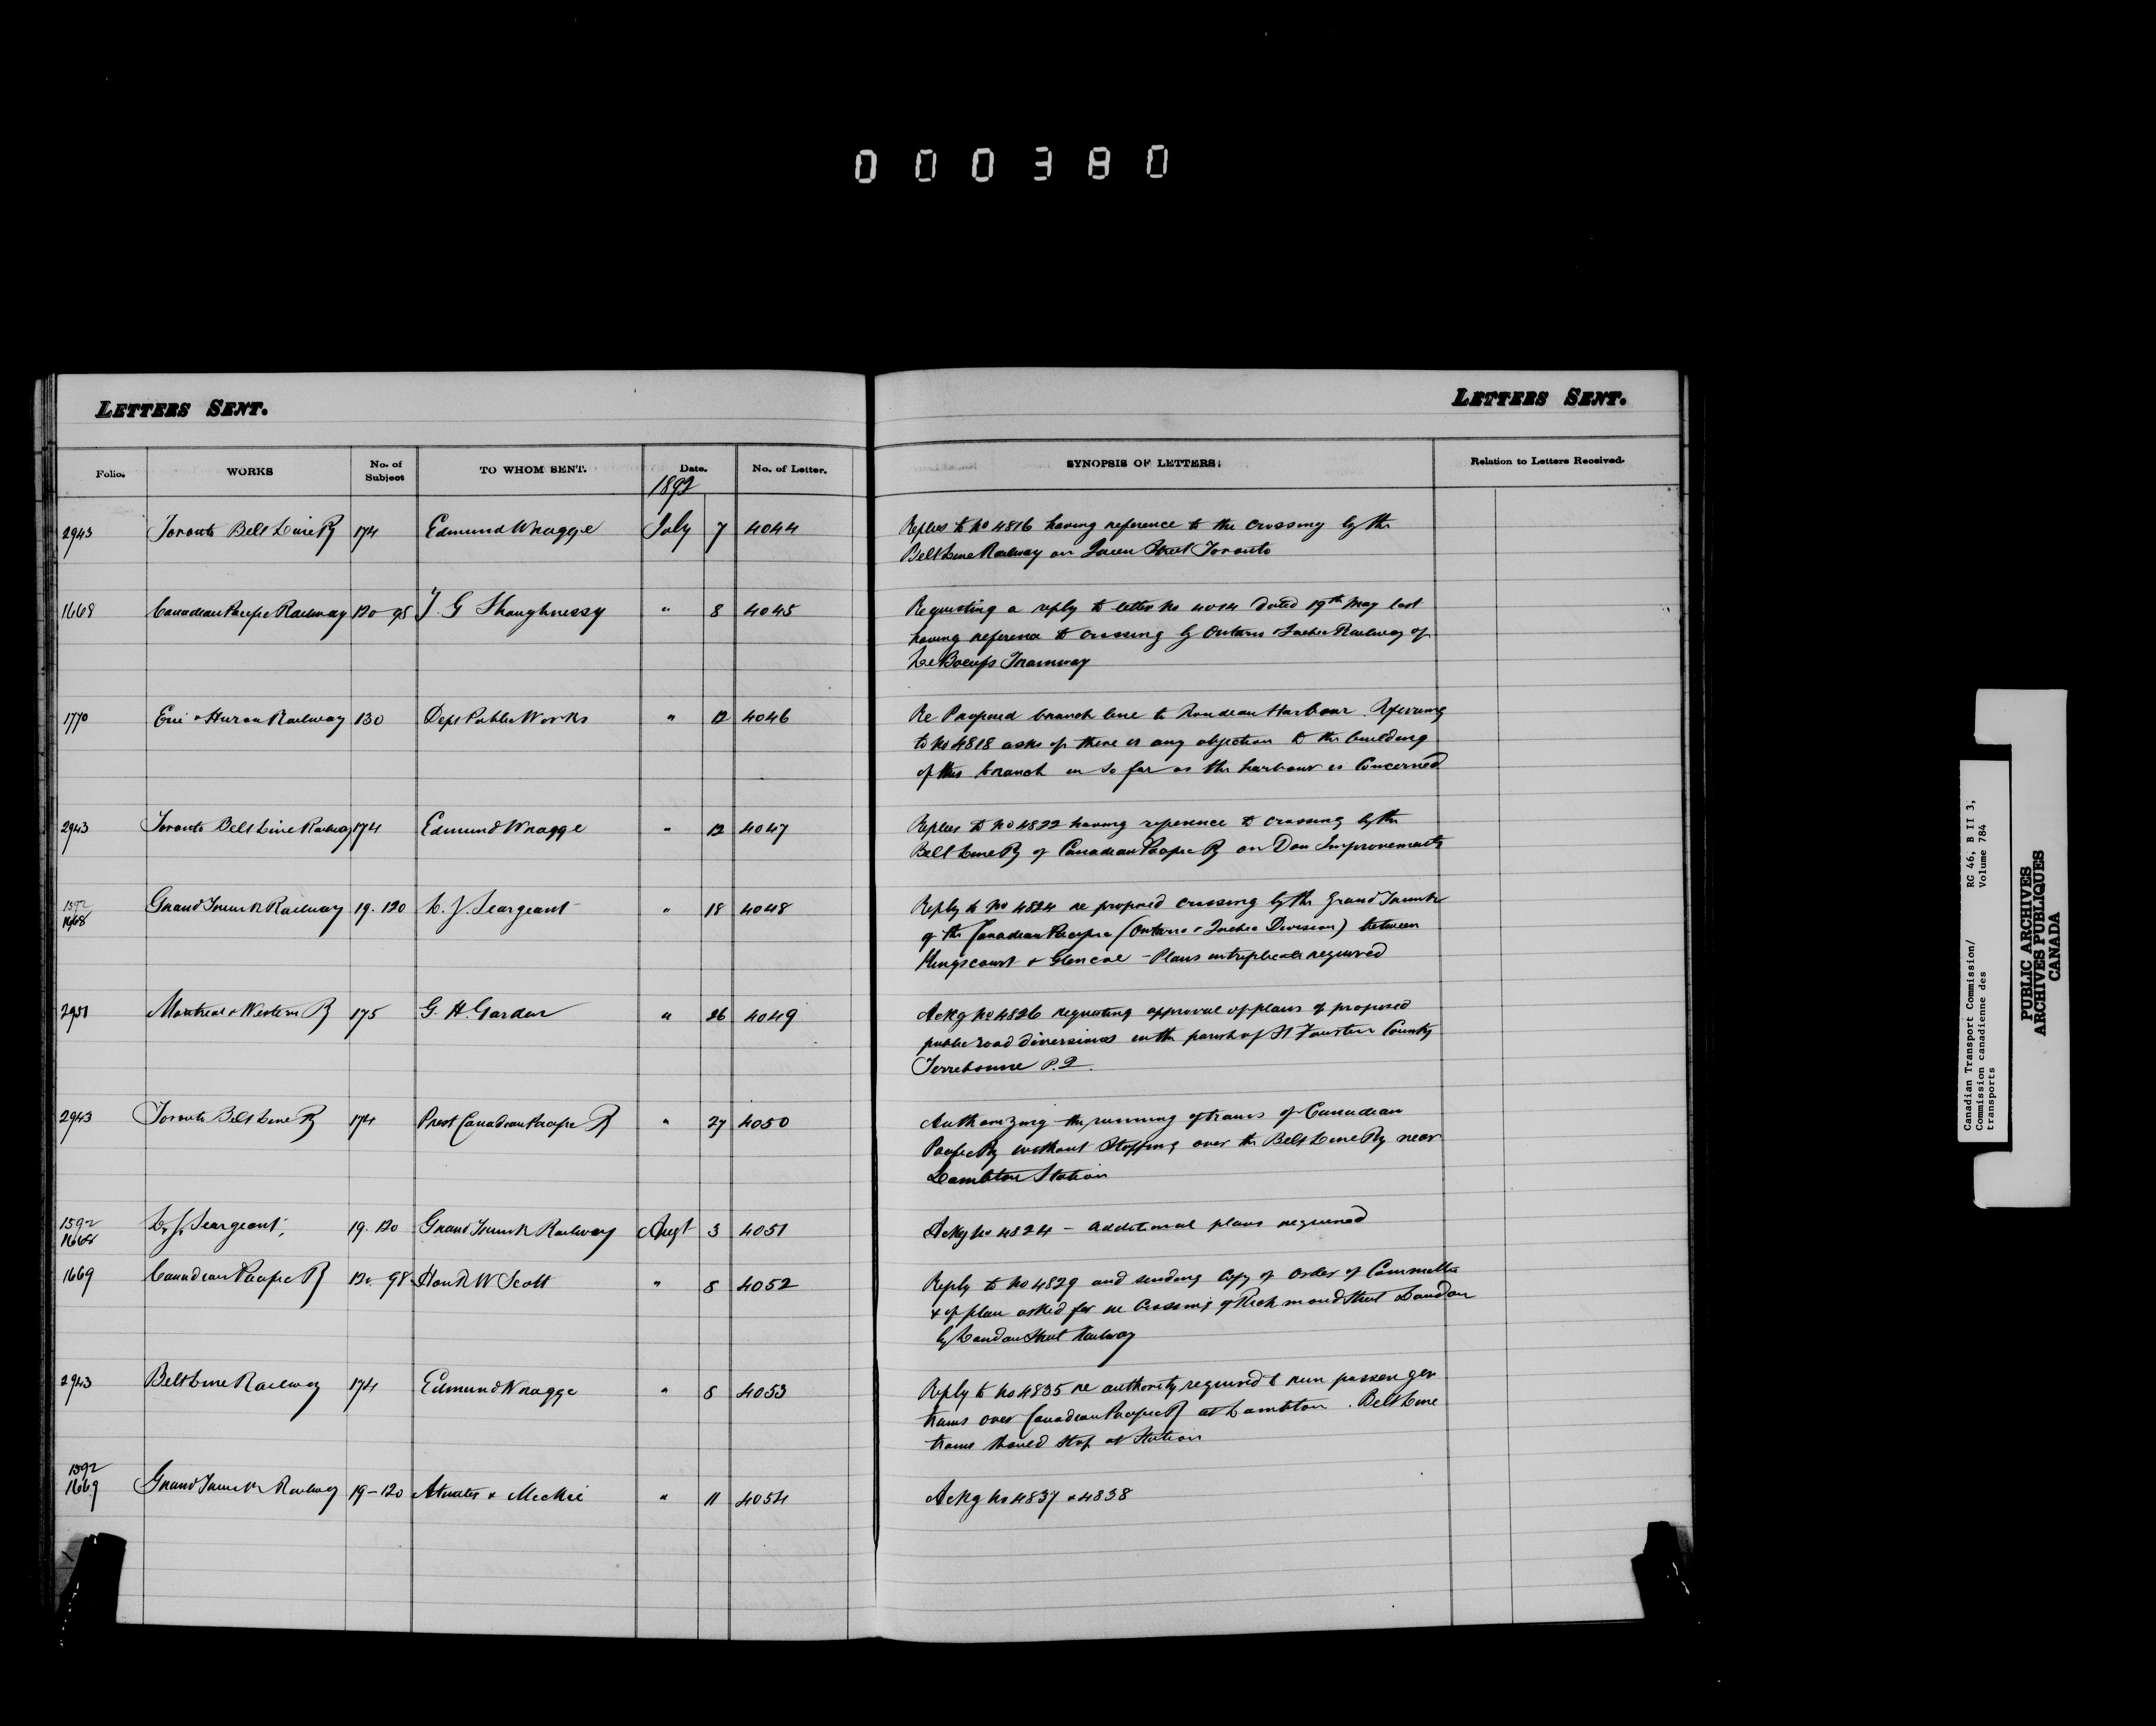 000380
LETTERS SENT.
LETTERS SENT.
Folio. WORKS No. of Subject TO WHOM SENT. Date. No. of Letter. SYNOPSIS OF LETTERS: Relation to Letters Received.
1892
2943 Toronto Belt Line Ry 174 Edmund Wragge July 7 4044 Replies to No 4816 having reference to the crossing by the
Belt Line Railway on Queen Street Toronto
1668 Canadian Pacific Railway 120-98 T. G Shaughnessy " 8 4045 Requesting a reply to letter No 4014 dated 19th May last
having reference to crossing by Ontario & Quebec Railway of
Le Boeufs Tramway
1770 Erie & Huron Railway 130 Dept Public Works " 12 4046 Re Proposed branch line to Rondeau Harbour. Referring
to No 4818 asks if there is any objection to the building
of this branch in so far as the harbour is Concerned
2943 Toronto Belt Line Railway 174 Edmund Wragge " 12 4047 Replies to No 4822 having reference to crossing by the
Belt Line Ry of Canadian Pacific Ry on Don Improvements
1592
1668 Grand Trunk Railway 19. 120 L. J. Seargeant " 18 4048 Reply to No 4824 re proposed crossing by the Grand Trunk
of the Canadian Pacific (Ontario & Quebec Division) between
Kingscourt & Glencoe - Plans in triplicate required
2951 Montreal & Western Ry 175 G. H. Garden " 26 4049 Ackg No 4826 requesting approval of plans of proposed
public road diversions in the parish of St Faustin County
Terrebonne P.Q.
2943 Toronto Belt Line Ry 174 Prest Canadian Pacific Ry " 27 4050 Authorizing the running of trains of Canadian
Pacific Ry without Stopping over the Belt Line Ry near
Lambton Station
1592
1668 L. J. Seargeant, 19. 120 Grand Trunk Railway Augt 3 4051 Ackg No 4824 - additional plans required
1669 Canadian Pacific Ry 120-98 Hon R W Scott " 8 4052 Reply to No 4829 and sending Copy of Order of Committee
& of plan asked for re Crossing of Richmond Street London
by London Street Railway
2943 Belt Line Railway 174 Edmund Wragge " 8 4053 Reply to No 4835 re authority required to run passenger
trains over Canadian Pacific Ry at Lambton. Belt Line
trains should stop at Station
1592
1669 Grand Trunk Railway 19-120 Atwater & Mackie " 11 4054 Ackg No 4837 & 4838
Canadian Transport Commission/ RG 46, B II 3,
Commission canadienne des Volume 784
transports
PUBLIC ARCHIVES
ARCHIVES PUBLIQUES
CANADA